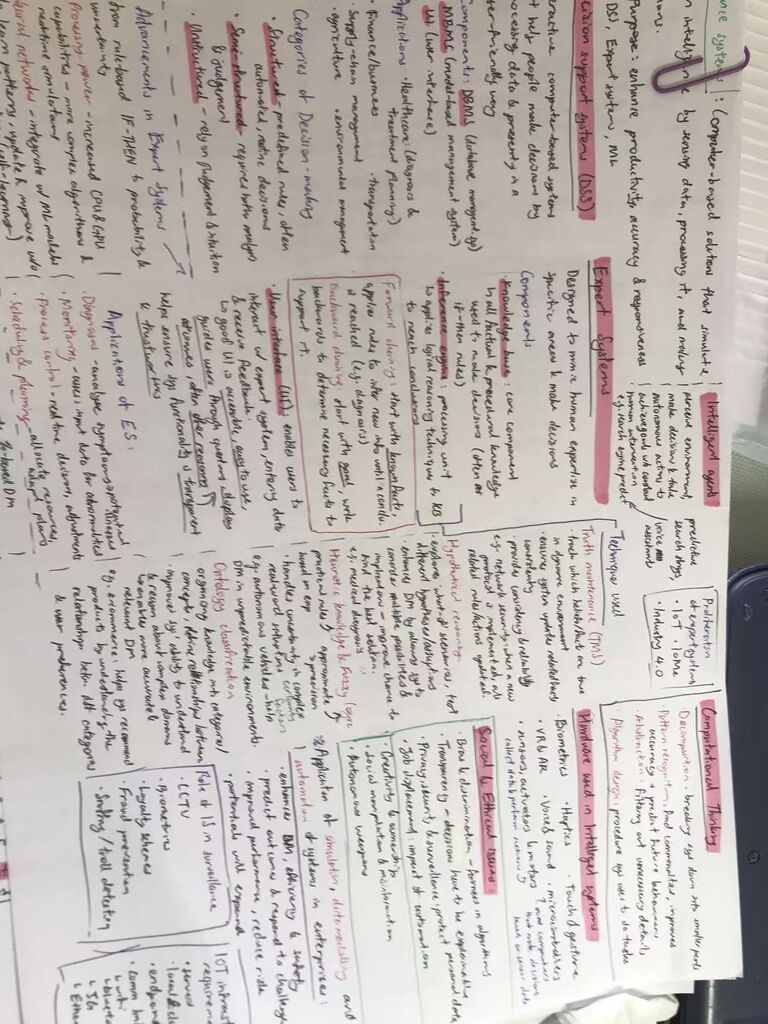 : Computer-based solution that simulate
intelligence by sensing data, processing it, and making
Purpose: enhance productivity, accuracy & responsiveness
DSS, Expert systems, ML
Decision support systems (DSS)
interactive computer-based systems
that help people make decisions by
processing data & presenting in a
user-friendly way
Components: DBMS (database managent.sys)
MBMS (model-based management system)
UI (user interface)
Applications • Healthcare (diagnosis &
treatment planning)
• Finance/business • transportation
• Supply-chain management
• agriculture • environmental management
Categories of Decision-making
• Structured - predefined rules, often
automated, routine decisions
• Semi-structured - requires both analysis
& judgement
• Unstructured - rely on judgement & intuition
Advancements in Expert Systems
from rule-based IF-THEN to probability &
uncertainty
Processing power - increased CPU & GPU
capabilities - more complex algorithms &
real-time simulations
Neural networks - integrate w/ ML models
learn patterns, update & improve w/o
Expert Systems
Designed to mimic human expertise in
specific areas & make decisions
Components
• Knowledge base: core component
used to make decisions (often as
if-then rules)
• Inference engine: processing unit
to applies logical reasoning techniques to KB
to reach conclusions
Forward chaining: start with known facts,
applies rules to infer new info until a conclu.
is reached (e.g. diagnosis)
Backward chaining: start with goal, work
backwards to determine necessary facts to
support it.
• User interface (UI): enables users to
interact w/ expert system, entering data
& receive feedback.
↳ good UI is accessible, easy to use,
guides users through questions, displays
outcomes, offer clear reasons
helps ensure sys functionality is transparent
& trustworthy
Applications of ES:
• Diagnosis - analyse symptoms
• Monitoring - assess input data for abnormalities
• Process control - real time decisions, adjustments
• Scheduling & planning - allocate resources
Intelligent agents
perceive environment,
make decisions & take
autonomous actions to
achieve goal w/o constant
human intervention
e.g. search engine predict
predictive
search things,
voice
assistants
Proliferation
of expert systems
• IoT • IoMe
• Industry 4.0
Techniques used
Truth maintenance (TMS)
• track which beliefs/fact are true
in dynamic environment
• ensures system updates related facts
consistently
• provides consistency & reliability
e.g. network security, when a new
protocol is implemented, all
related rules/actions updated.
Hypothetical reasoning
• explores what-if scenarios, test
different hypotheses/assumptions
• enhances DM by allowing sys to
consider multiple possibilities &
implications → improve chance to
find the best solution.
e.g. medical diagnosis
Heuristic knowledge & fuzzy logic
practical rules & approximate
based on exp > precision
• handles uncertainty in complex
real-world situations
e.g. autonomous vehicles - help
DM in unpredictable environments.
certainty
factors
Ontology classification
organising knowledge into categories/
concepts, define relationships between
• improve sys' ability to understand
& reason about complex domains
↳ enables more accurate &
relevant DM
e.g. e-commerce: helps sys recommend
products by understanding the
relationships betw. diff categories
& user preferences.
Computational Thinking
• Decomposition: breaking sys down into smaller parts
• Pattern recognition: find commonalities, improves
accuracy & predict future behaviours
• Abstraction: filtering out unnecessary details
• Algorithm design: procedure sys uses to do tasks
Hardware used in Intelligent systems
• Biometrics • Haptics • Touch & gesture
• VR & AR • Voice & sound • microcontrollers
• sensors, actuators & motors
collect data & perform actions
↑ mini computers
that make decisions
based on sensor data
Social & Ethical issues
• Bias & discrimination - biasness in algorithms
• Transparency - decisions have to be explainable
• Privacy, security, & surveillance: protect personal data
• Job displacement: impact of automation
• Creativity & ownership
• Social manipulation & misinformation
• Autonomous weapons
Application of simulation, data modelling and
automation of systems in enterprises:
• enhances DM, efficiency & safety
• predict outcomes & respond to challenges
• improved performance, reduce risk
Role of IS in surveillance
• CCTV
• Biometrics
• Loyalty schemes
• Fraud prevention
• Drafting / troll detecting
requirements
• servers
endpoints
• comm
↳ 5G